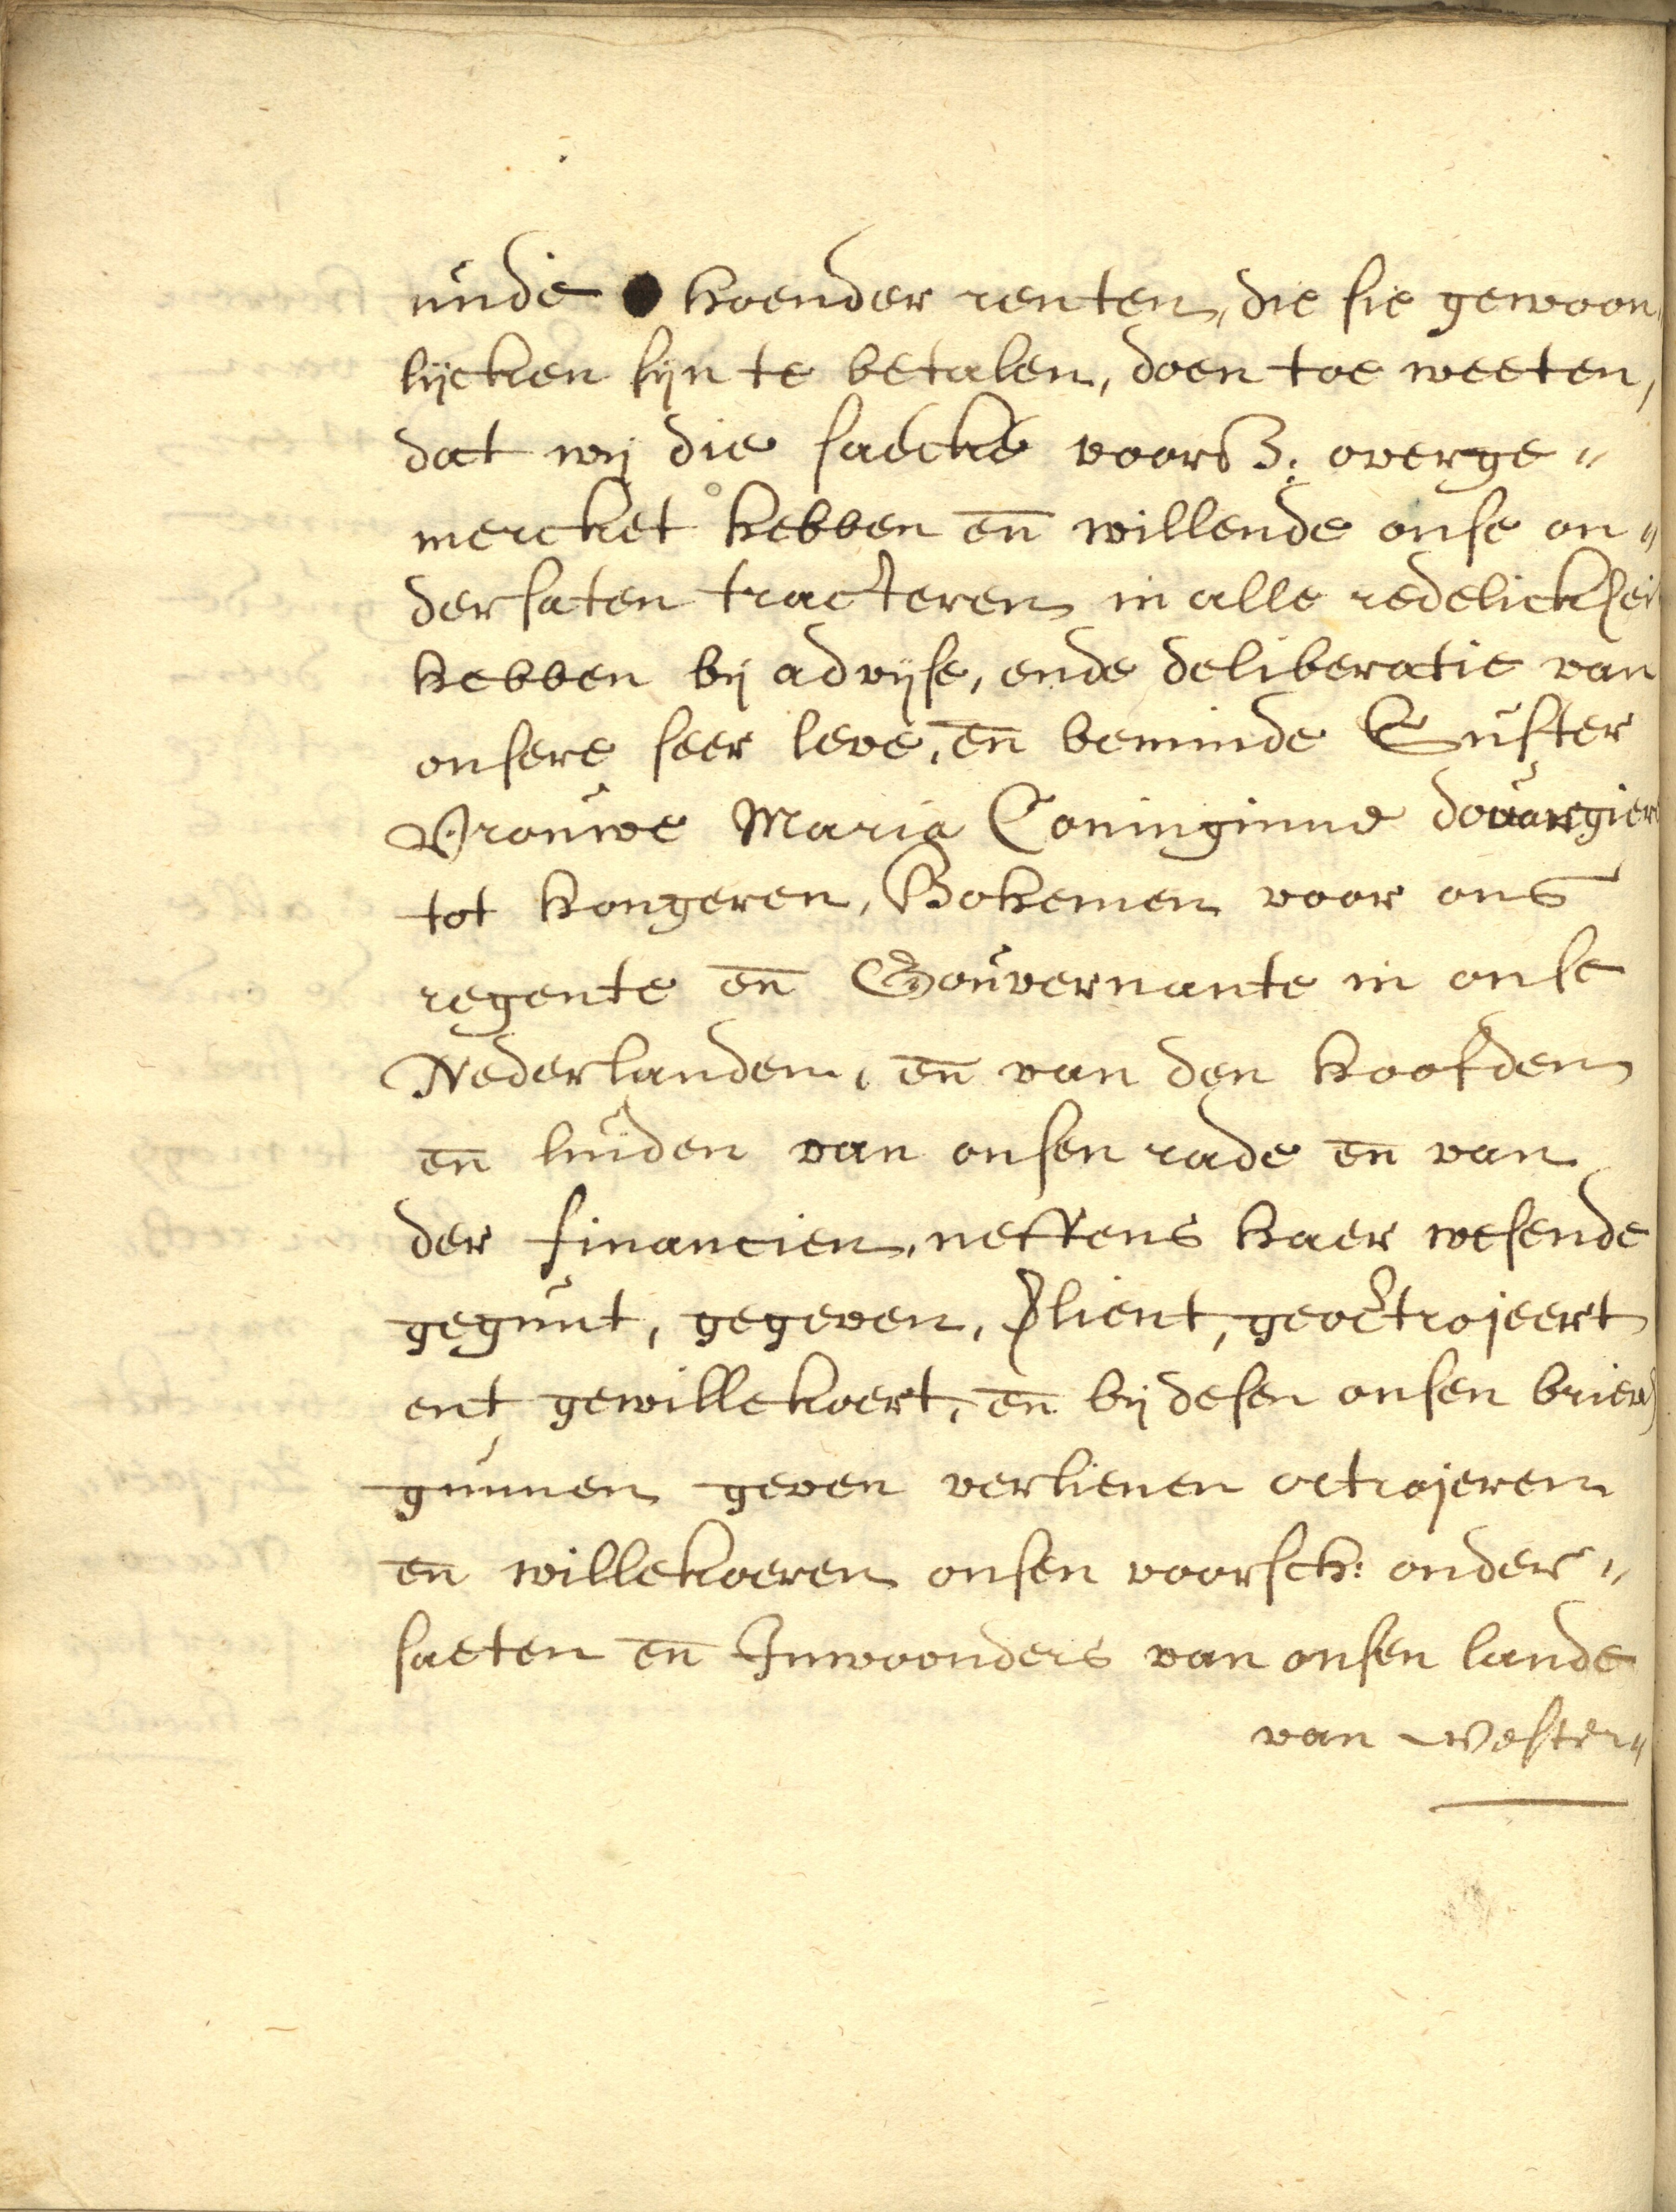 unde hoender renten, die sie gewoon
lijcken sijn te betalen, doen toe weeten,
dat wij die saecke voorß: overge„
mercket hebben en̄ willende onse on„
dersaten tracteren in alle redelickhei
hebben bij advijse, ende deliberatie van
onsere seer leve, en̄ beminde Suster
Vrouwe Maria Coninginne douargier
tot hongeren, Bohemen voor ons
regente en̄ Gouvernante in onse
Nederlanden, en̄ van den hoofden
en̄ luiden van onsen rade en̄ van
der financien, neffens haer wesende
gegunt, gegeven, verlient, geoctrojeert
ent gewillekoert, en̄ bij desen onsen briev
gunnen geven verlienen octrojeren
en̄ willekoeren onsen voorsch: onder„
saeten en̄ Inwoonders van onsen lande
van Wester„